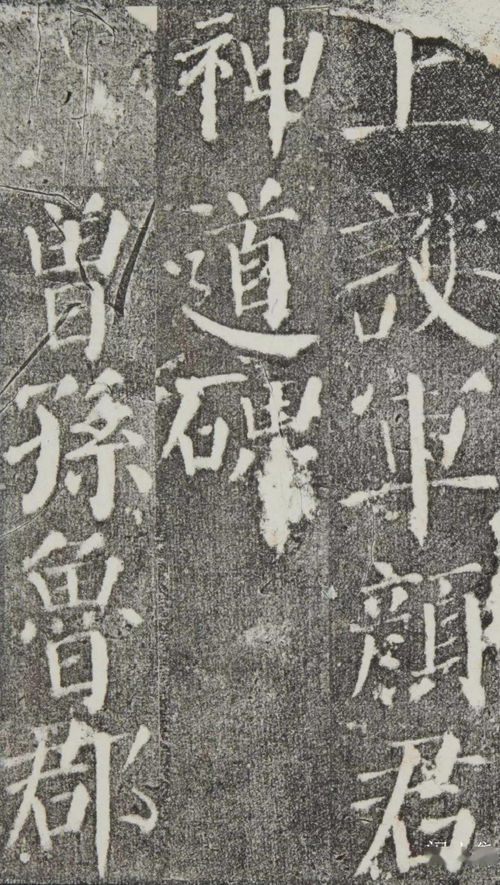 上護軍顏君
神道碑
曾孫魯郡